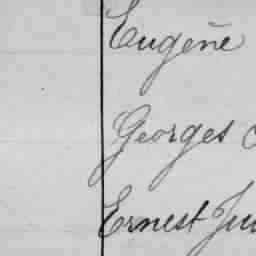 Eugène
Georges
Ernest